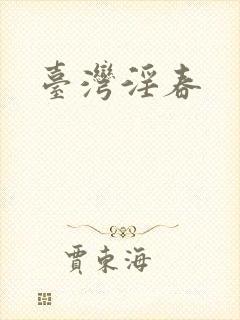 臺灣淫春
賈東海